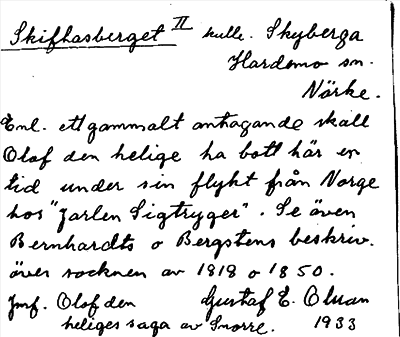 Skifhasberget II kulle. Skyberga
Hardemo sn.
Närke.
Enl. ett gammalt antagande skall
Olof den helige ha bott här en
tid under sin flykt från Norge
hos "Jarlen Sigtryger". Se även
Bernhardts o Bergstens beskriv.
över socknen av 1818 o 1850.
Jmf. Olof den Gustaf E. Olsson
heliges saga av Snorre. 1933